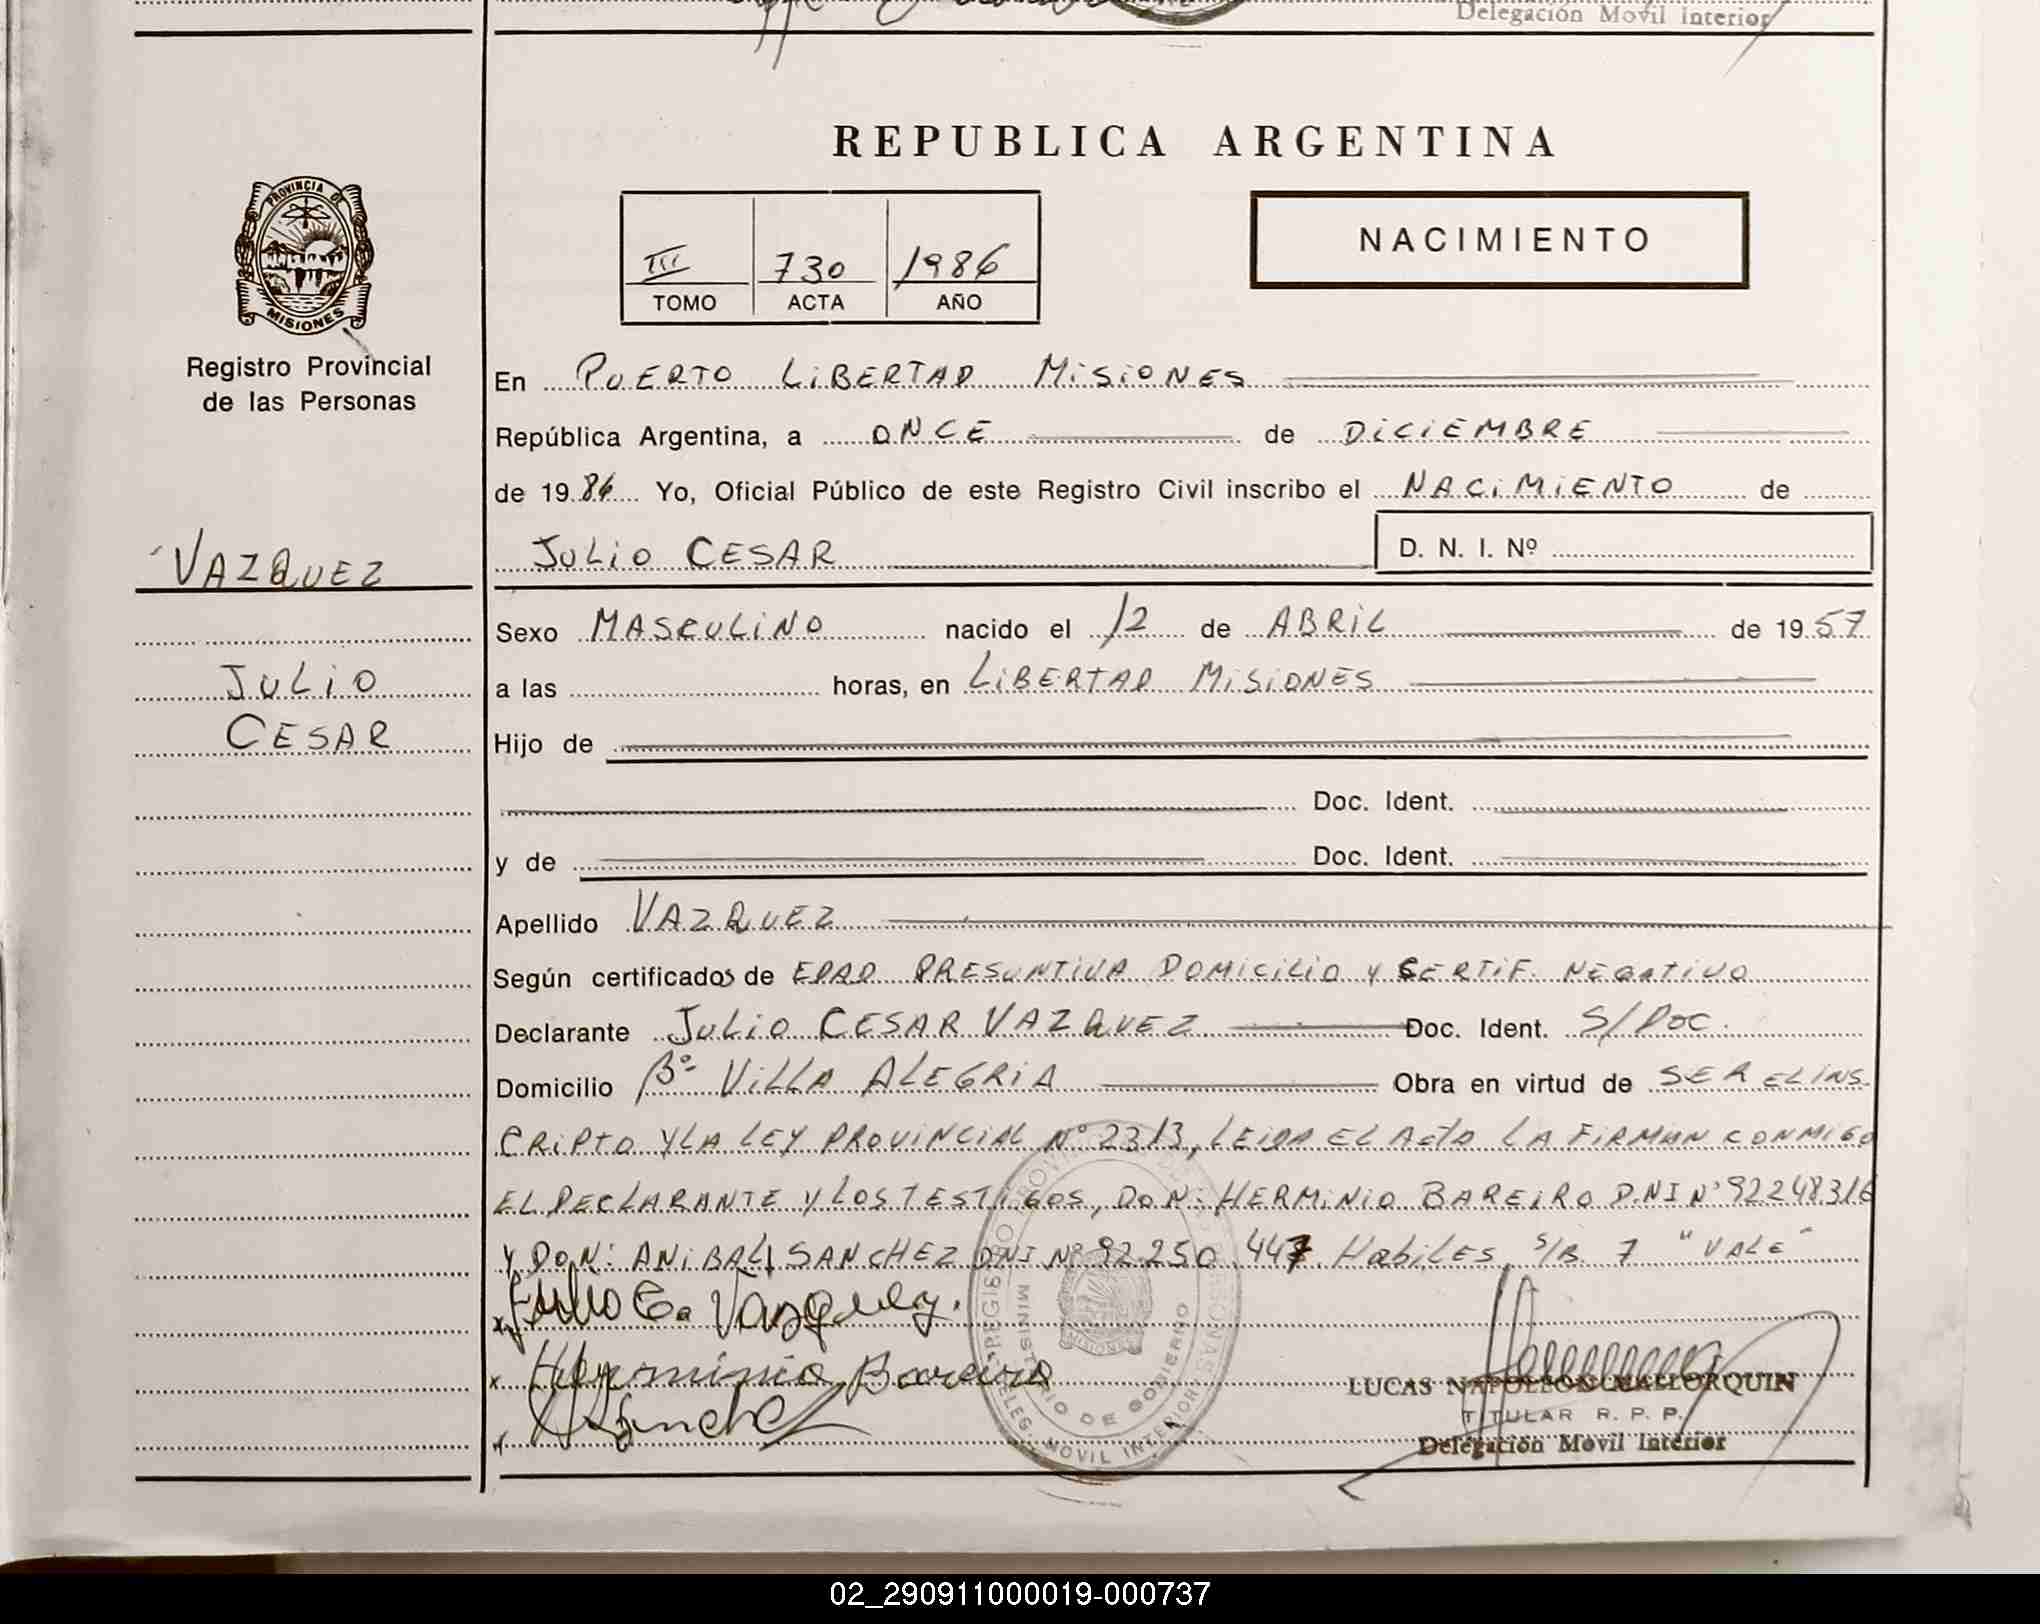 Delegación Móvil Interior
REPUBLICA ARGENTINA
PROVINCIA DE
MISIONES
Registro Provincial
de las Personas
III 730 1986
TOMO ACTA AÑO
NACIMIENTO
En PUERTO LIBERTAD MISIONES
República Argentina, a ONCE de DICIEMBRE
de 1986 Yo, Oficial Público de este Registro Civil inscribo el NACIMIENTO de
JULIO CESAR D. N. I. Nº
VAZQUEZ
JULIO
CESAR
Sexo MASCULINO nacido el 12 de ABRIL de 1957
a las horas, en LIBERTAD MISIONES
Hijo de
Doc. Ident.
y de Doc. Ident.
Apellido VAZQUEZ
Según certificados de EDAD PRESUNTIVA DOMICILIO Y CERTIF. NEGATIVO
Declarante JULIO CESAR VAZQUEZ Doc. Ident. S/DOC.
Domicilio Bº VILLA ALEGRIA Obra en virtud de SER EL INS
CRIPTO Y LA LEY PROVINCIAL Nº 2313, LEIDA EL ACTA LA FIRMAN CONMIGO
EL DECLARANTE Y LOS TESTIGOS, DON: HERMINIO BAREIRO D.NI Nº 92248316
Y DON: ANIBAL SANCHEZ DNI Nº 92.250.447. Habiles, S/B. 7 "VALE"
x Julio C. Vazquez.
x Herminio Bareiro
x ASanchez
MINISTERIO DE GOBIERNO
DELEG. MOVIL INTERIOR
MISIONES
LUCAS NAPOLEON MALLORQUIN
TITULAR R. P. P.
Delegación Móvil Interior
02_290911000019-000737